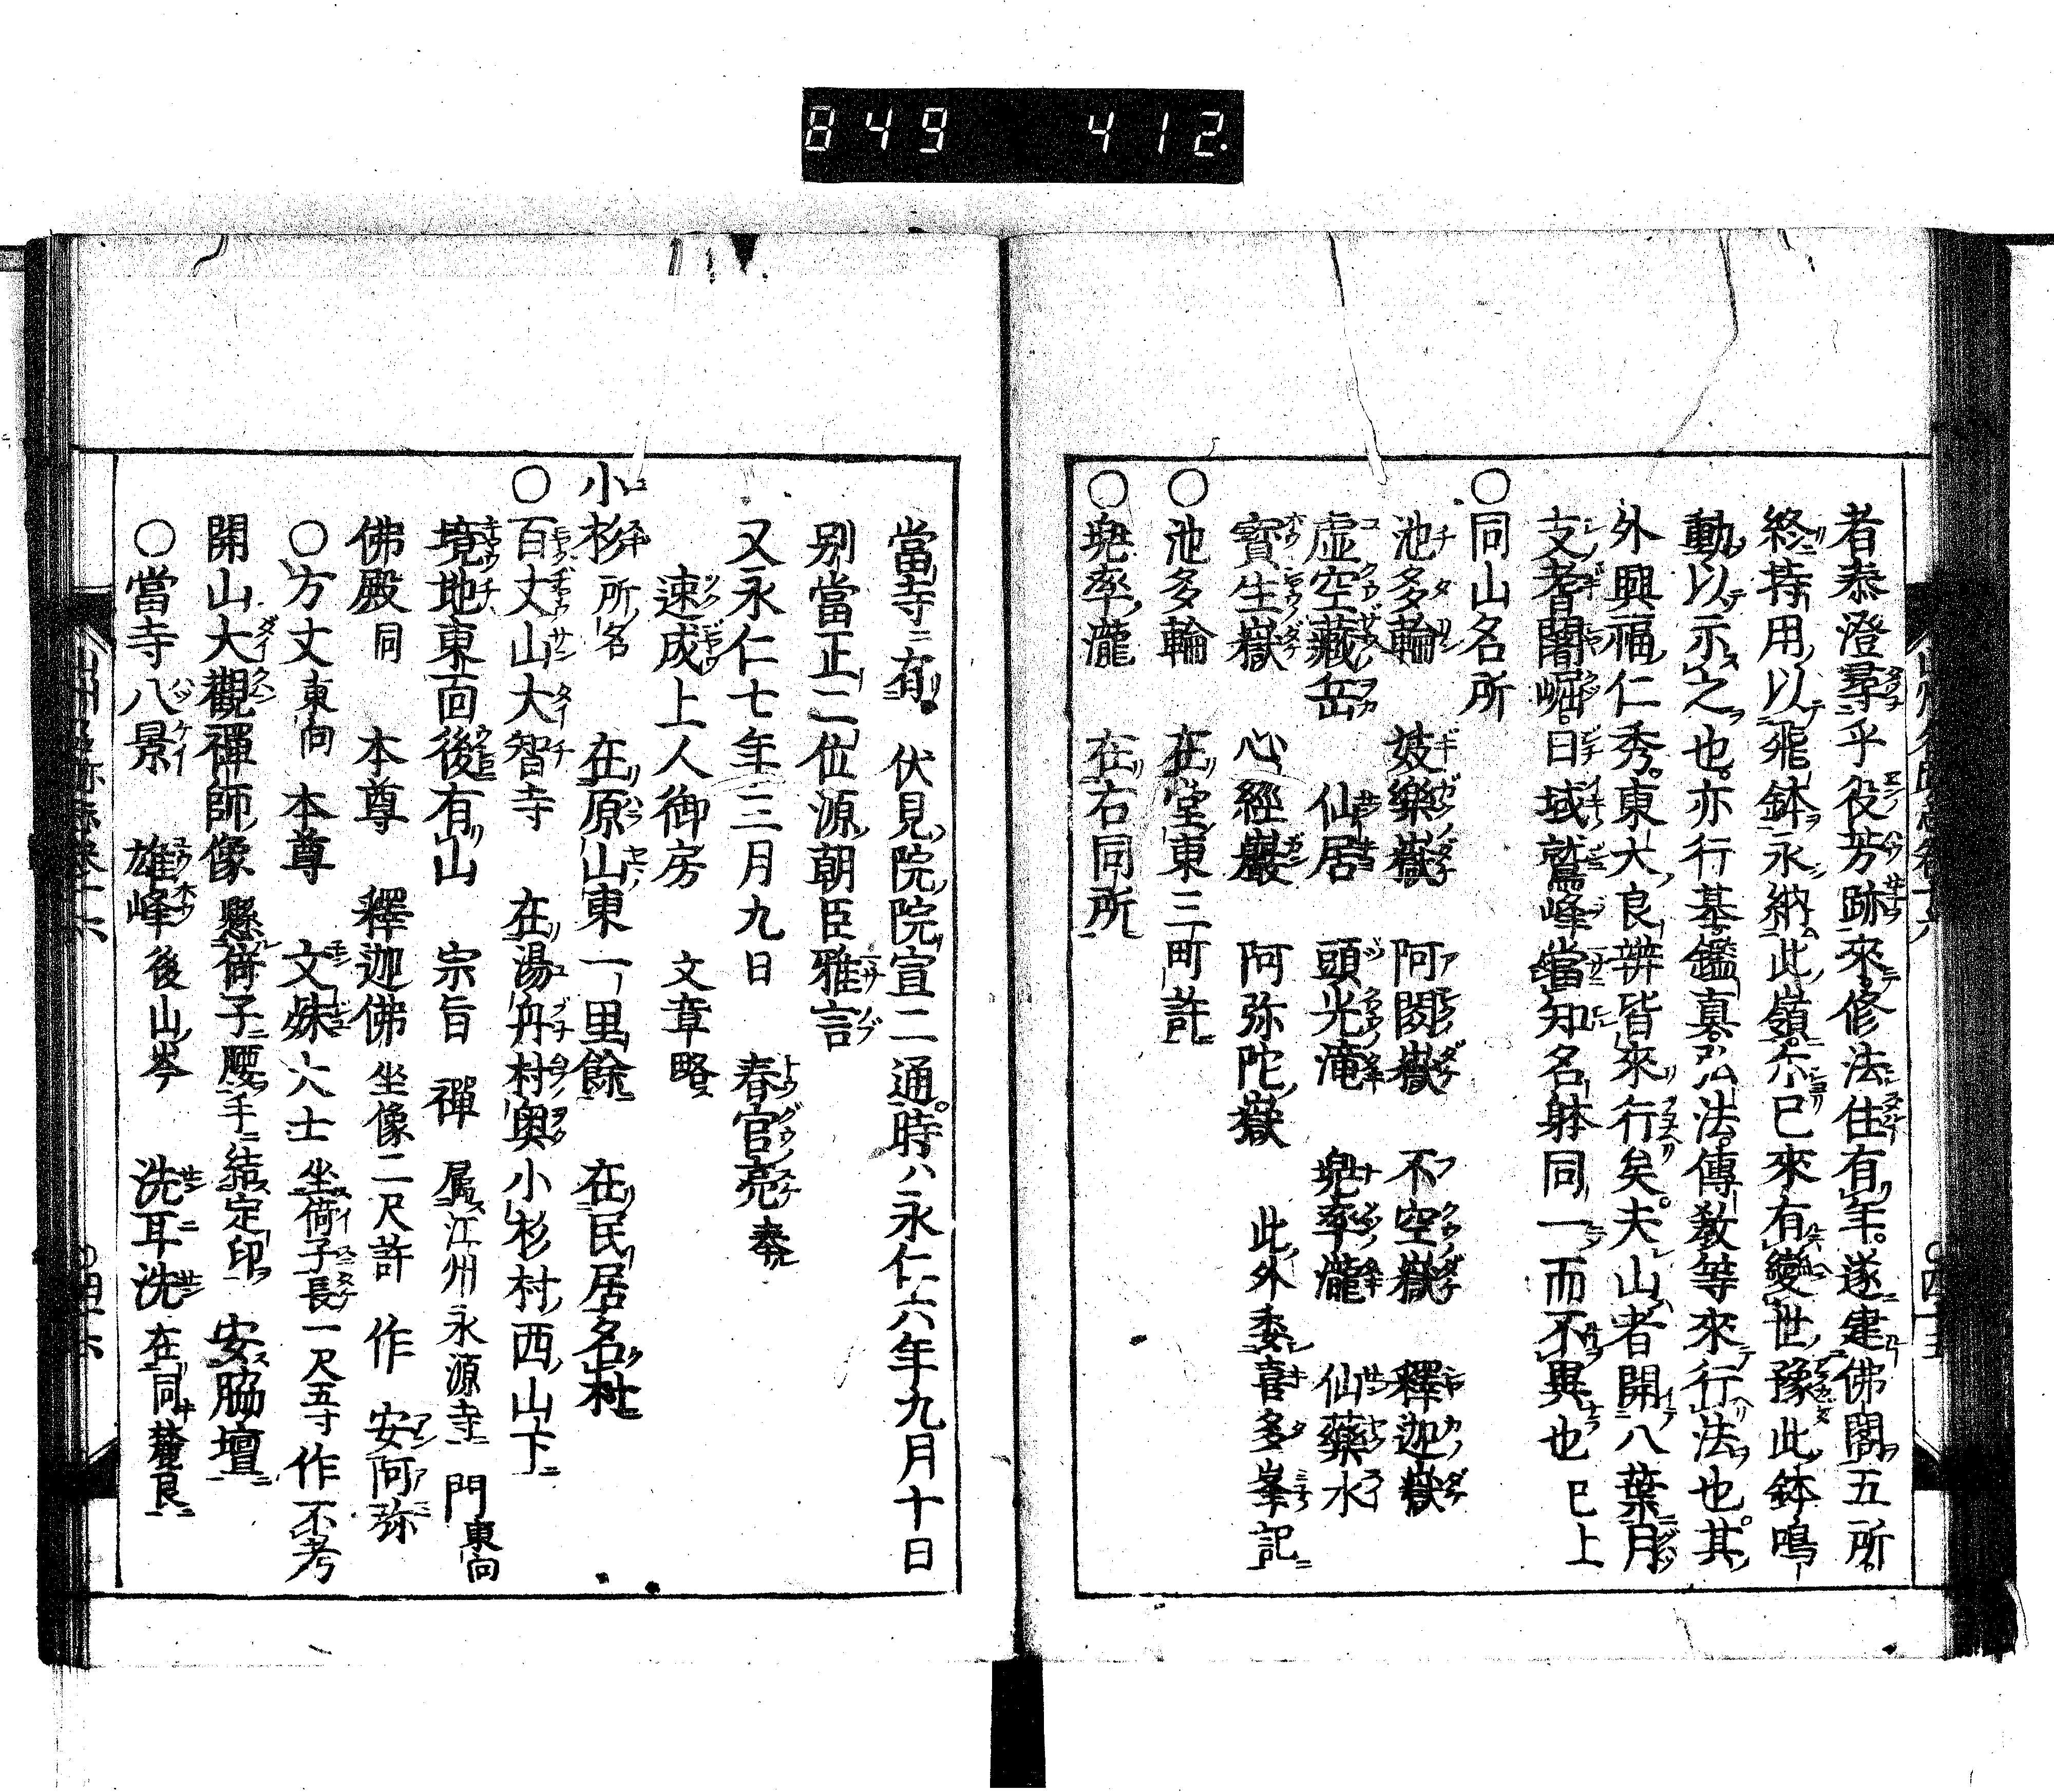 849 412.
者泰澄尋乎役芳跡來修法住有年。遂建佛閣五所
終持用以飛鉢永納此嶺尓已來有變世豫此鉢鳴
動以示之也。亦行基鑑真弘法傳敎等來行法也。其
外興福仁秀。東大良辨皆來行矣。夫山者開八葉月
支耆闍崛。日域鷲峰當知名躰同一而不異也 已上
〇同山名所
池多輪 妓樂嶽 阿閦嶽 不空嶽 釋迦嶽
虚空藏岳 仙居 頭光滝 兠率瀧 仙藥水
寳生嶽 心經巖 阿弥陀嶽 此外委喜多峯記
〇池多輪 在堂東三町許
〇兠率瀧 在右同所
當寺有 伏見院院宣二通。時ハ永仁六年九月十日
別當正二位源朝臣雅言
又永仁七年三月九日 春宮亮奉
速成上人御房 文章略
小杉 所名 在原山東一里餘 在民居名村
〇百丈山大智寺 在湯舟村奥小杉村西山下
境地東面後有山 宗旨 禪 属江州永源寺 門東向
佛殿 同 本尊 釋迦佛 坐像二尺許 作 安阿弥
〇方丈 東向 本尊 文殊大士 坐倚子長一尺五寸 作不考
開山大觀禪師像 懸倚子腰手結定印 安脇壇
〇當寺八景 雄峰 後山岑 洗耳洗 在同麓艮